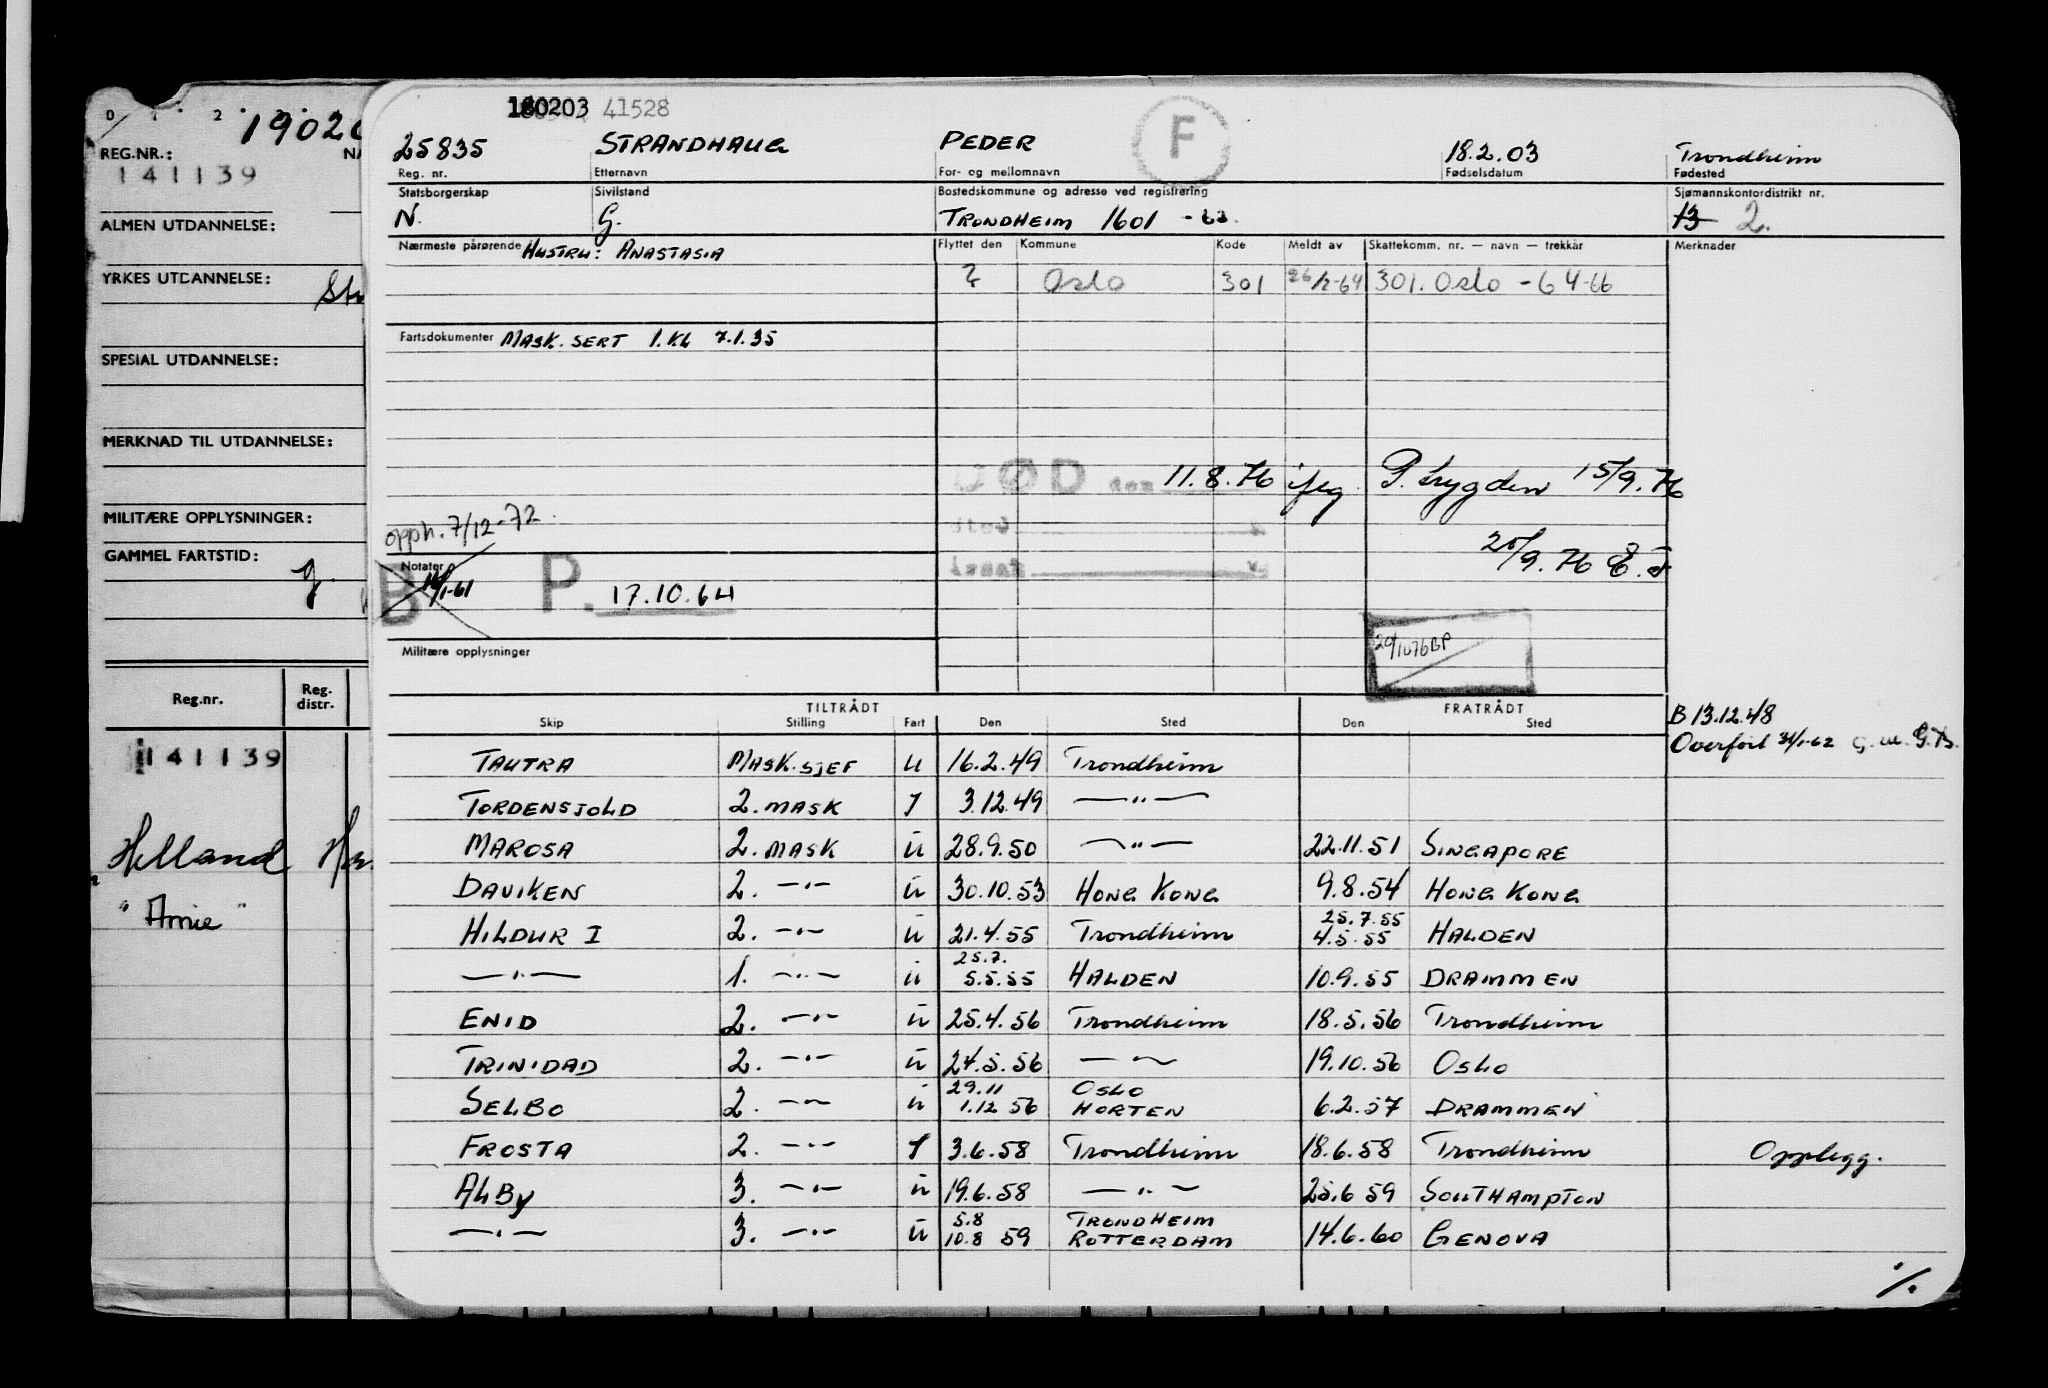 0 1 2
1902
REG.NR.:
141139
ALMEN UTDANNELSE:
YRKES UTDANNELSE:
SPESIAL UTDANNELSE:
MERKNAD TIL UTDANNELSE:
MILITÆRE OPPLYSNINGER:
GAMMEL FARTSTID:
g.
Reg.nr. Reg. distr.
141139
Helland
"Arnie"
180203 41528
25835 STRANDHAUG PEDER F 18.2.03 Trondheim
Reg. nr. Etternavn For- og mellomnavn Fødselsdatum Fødested
Statsborgerskap Sivilstand Bostedskommune og adresse ved registrering Sjømannskontordistrikt nr.
N. G. TRONDHEIM 1601 - 63. 13 2.
Nærmeste pårørende HUSTRU: ANASTASIA Flyttet den Kommune Kode Meldt av Skattekomm. nr. — navn — trekkår Merknader
? Oslo 301 26/2-64 301. Oslo - 64-66
Fartsdokumenter MASK. SERT 1.KL 7.1.35
DØD den 11.8.76 P. Lygden 15/9.76
opph. 7/12-72.
sted
25/9.76 E.J
Notater
B P. 17.10.64
29/1076BP
Militære opplysninger
TILTRÅDT FRATRÅDT
Skip Stilling Fart Den Sted Den Sted
B 13.12.48
Overført 31/1-62
TAUTRA MASK.SJEF U 16.2.49 Trondheim
TORDENSJOLD 2. MASK I 3.12.49 —"—
MAROSA 2. MASK U 28.9.50 —"— 22.11.51 SINGAPORE
DAVIKEN 2. —"— U 30.10.53 HONG KONG 9.8.54 HONG KONG
HILDUR I 2. —"— U 21.4.55 Trondheim 25.7.55 4.5.55 HALDEN
—"— 1. —"— U 25.7. 5.5.55 HALDEN 10.9.55 DRAMMEN
ENID 2. —"— U 25.4.56 Trondheim 18.5.56 Trondheim
TRINIDAD 2. —"— U 24.5.56 —"— 19.10.56 OSLO
SELBO 2. —"— U 29.11 1.12 56 OSLO HORTEN 6.2.57 DRAMMEN
FROSTA 2. —"— I 3.6.58 Trondheim 18.6.58 Trondheim Opplegg.
ALBY 3. —"— U 19.6.58 —"— 25.6 59 SOUTHAMPTON
—"— 3. —"— U 5.8 10.8 59 TRONDHEIM ROTTERDAM 14.6.60 GENOVA
·/.